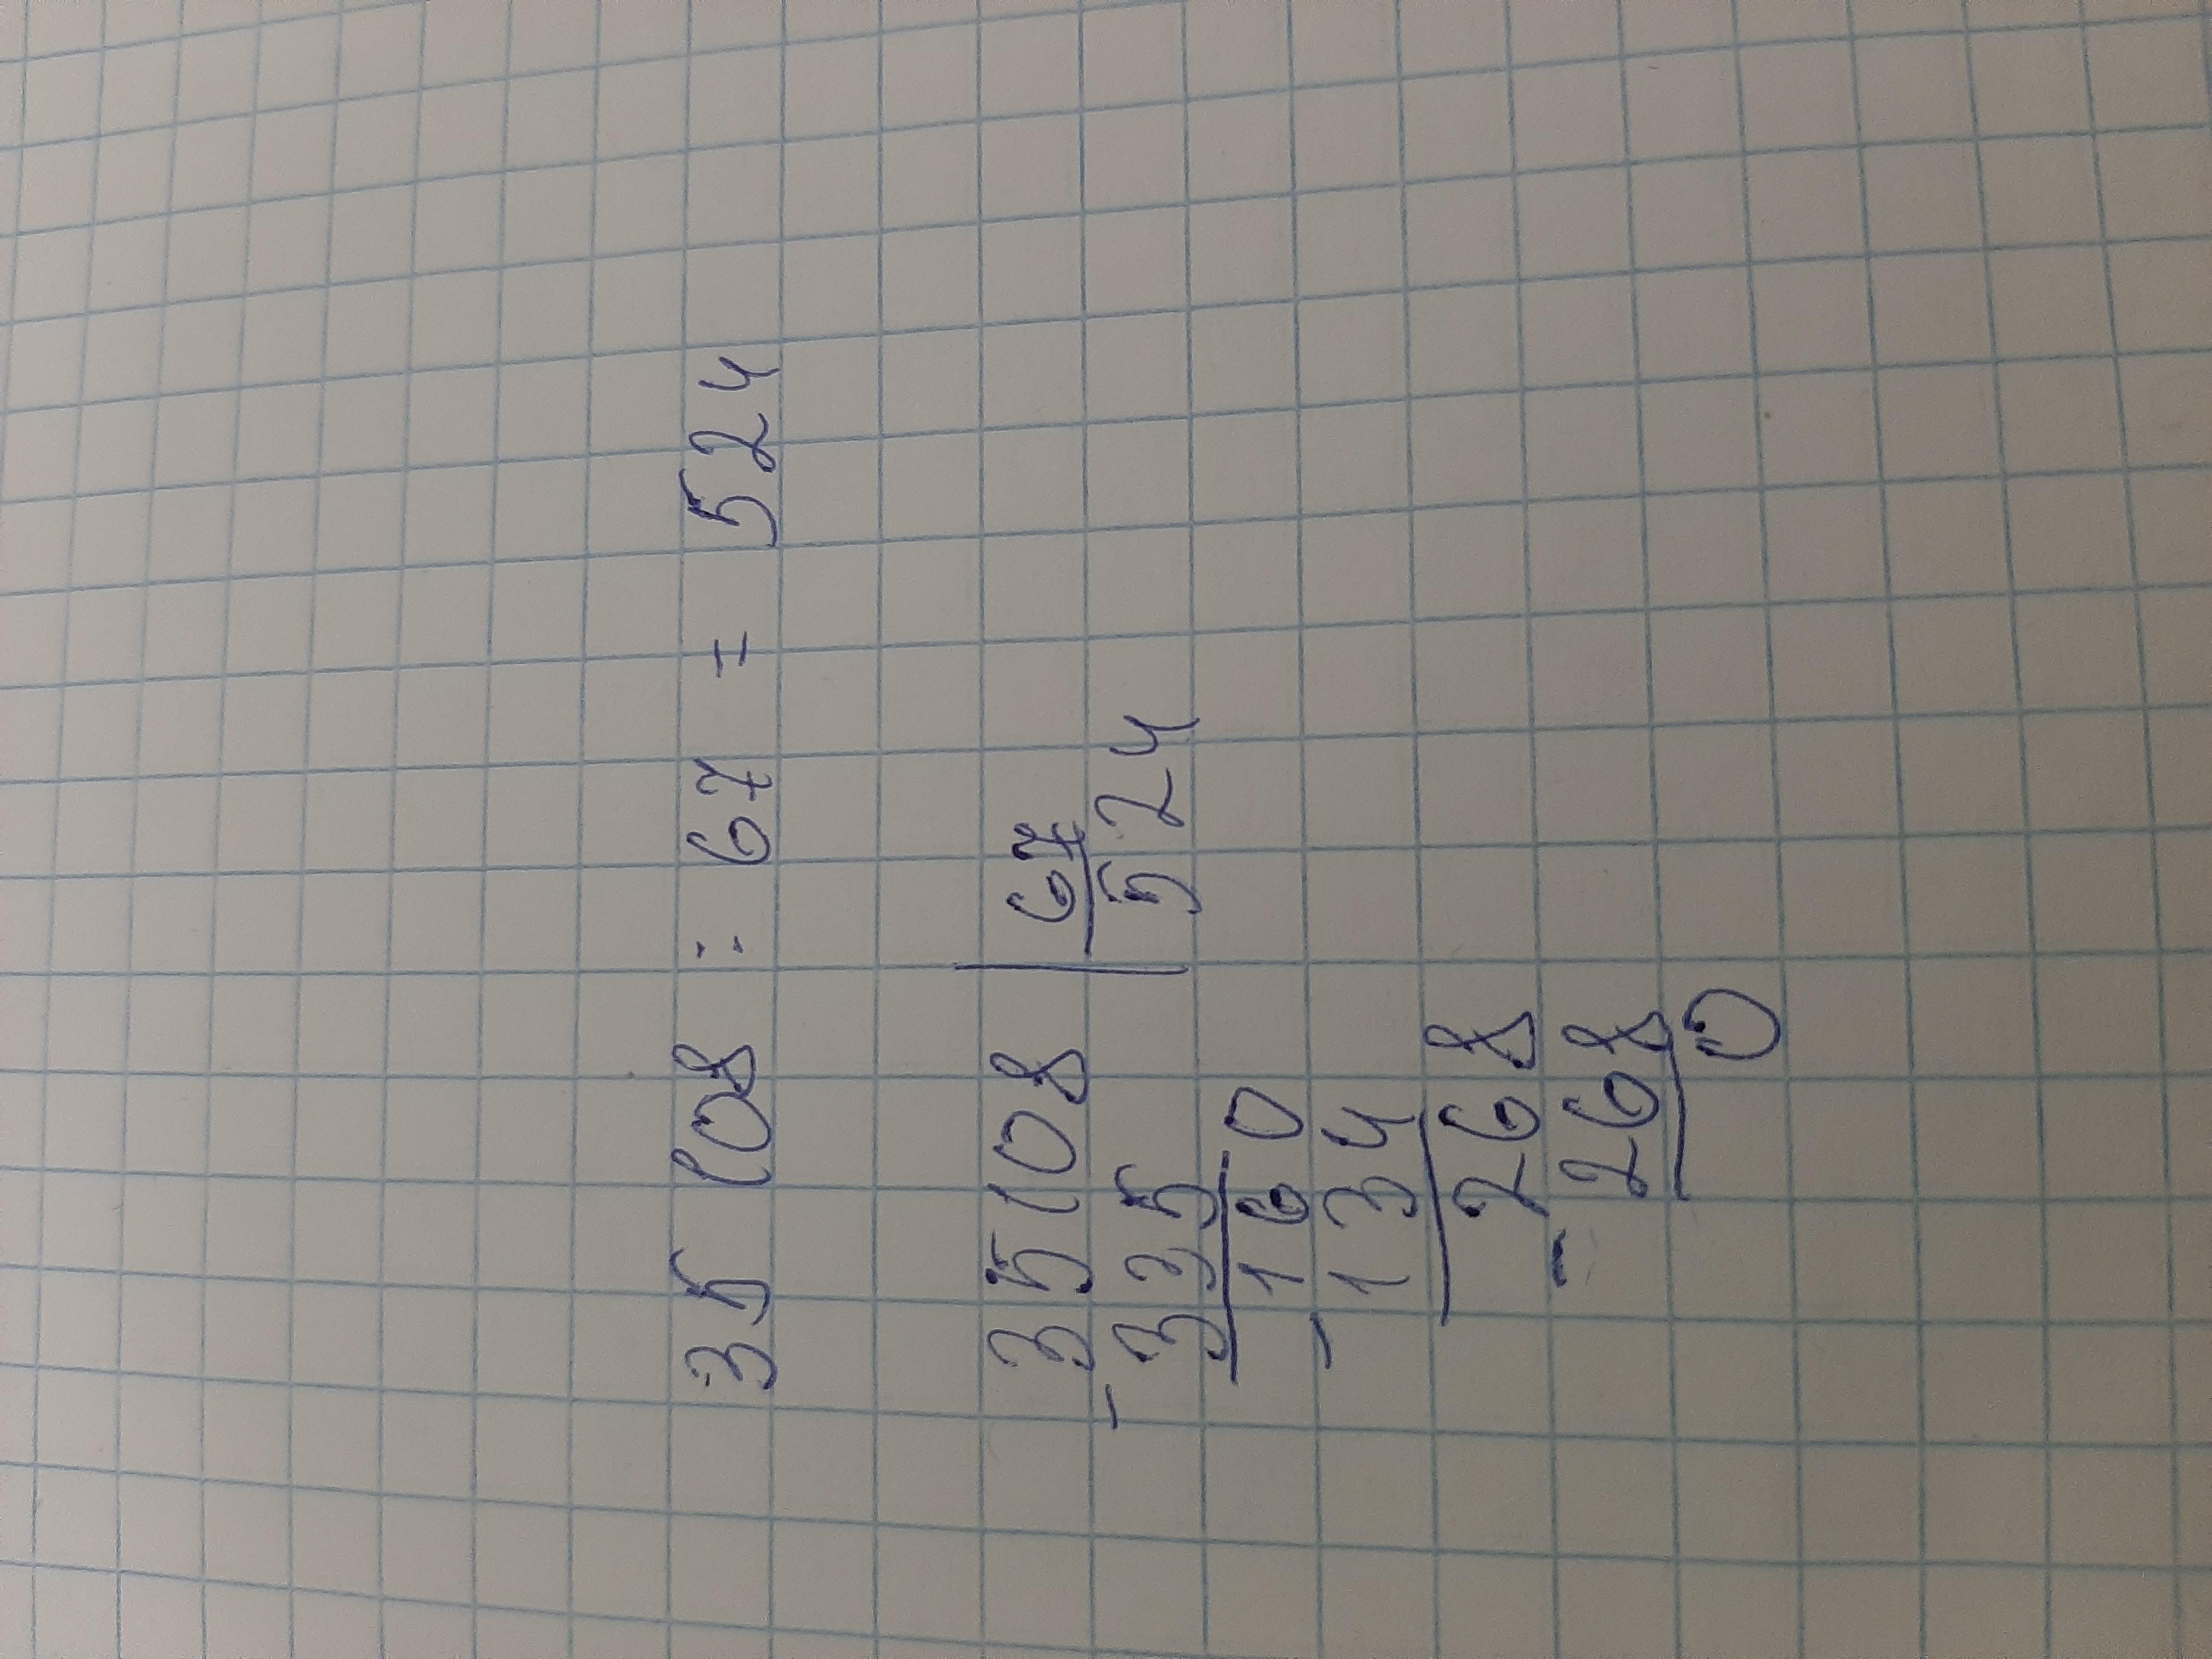 35108 : 67 = 524
35108 | 67
- 335 524
160
- 134
268
- 268
0